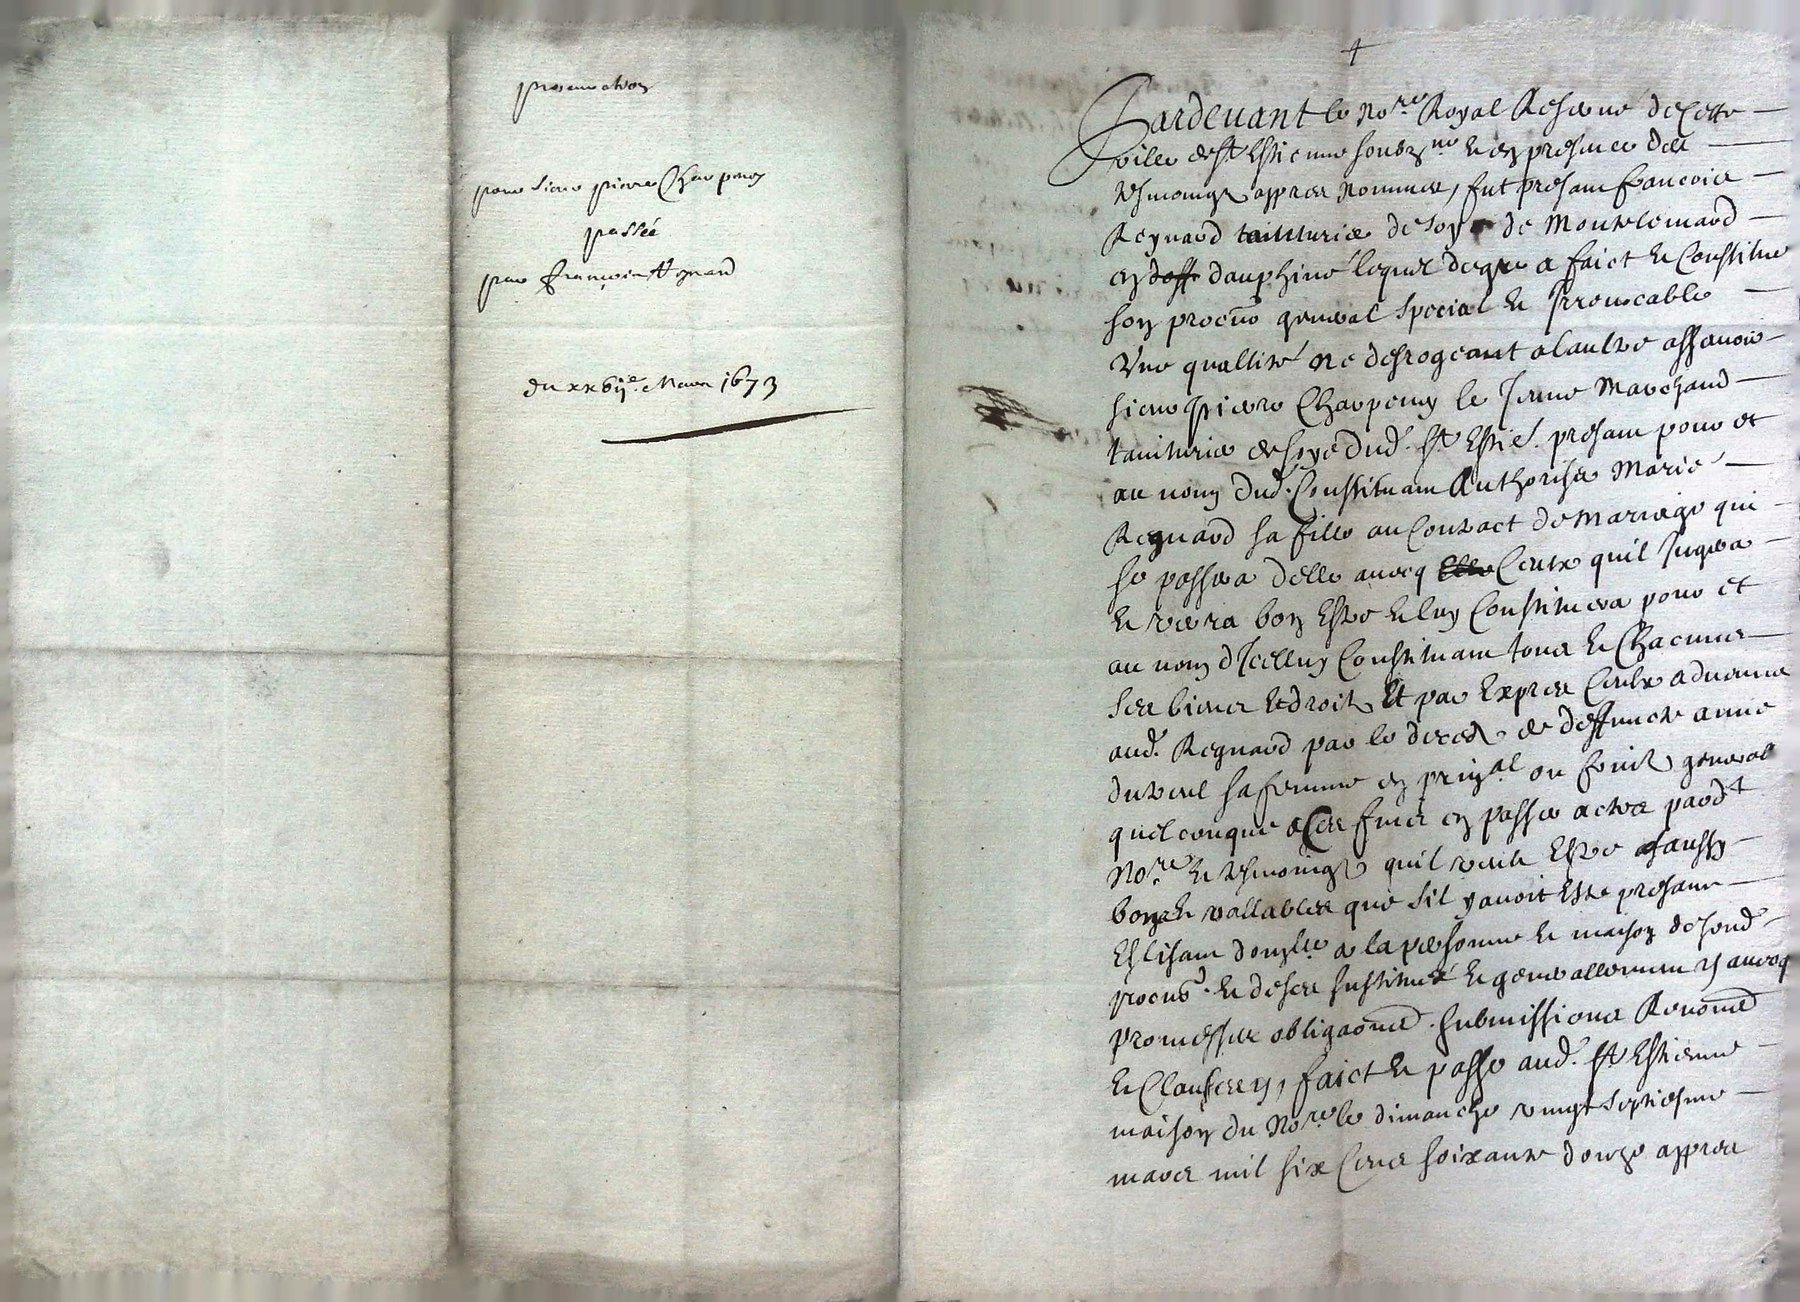 procuration
pour sieur pierre Charpenay
passée
par françois Regnard
du xxvije. Mars 1673
Pardevant le Nore Royal Reservé de Cette
ville de St Estienne soubzne & en presence des
tesmoings appres nommes, fut presant francois
Reynard tainturier de soye de Montelemard
en dauphiné lequel de gre a faict & Constitue
son procur general special & Irrevocable
Une quallité ne desrogeant a laultre assavoir
sieur pierre Charpenay le Jeune Marchand
tainturier de soye dud. St Estie. presant pour et
au nom dud. Constituant Authoriser Marie
Regnard sa fille au Contract de Mariage qui
se passera delle avecq Celuy quil Jugera
& verra bon Estre & luy Constituera pour et
au nom dIcelluy Constituant tous & Chacuns
ses biens & droits Et par Expres Ceulx advenus
aud. Regnard par le deces de deffuncte anne
sa femme en prinal ou fruits general
quelconque a Ces fins en passer actes pardt
Nore & tesmoings quil veult Estre aussy
bons & vallables que sil y avoit Este presant
Eslisant domlle a la personne & maison de sond.
procur. & de ses substitues & generallement & avecq
promesses obligaons. submissions Renonons
& Clauses, faict & passe aud. St Estienne
maison du Nore le dimanche vingt septiesme
mars mil six Cens soixante douze appres